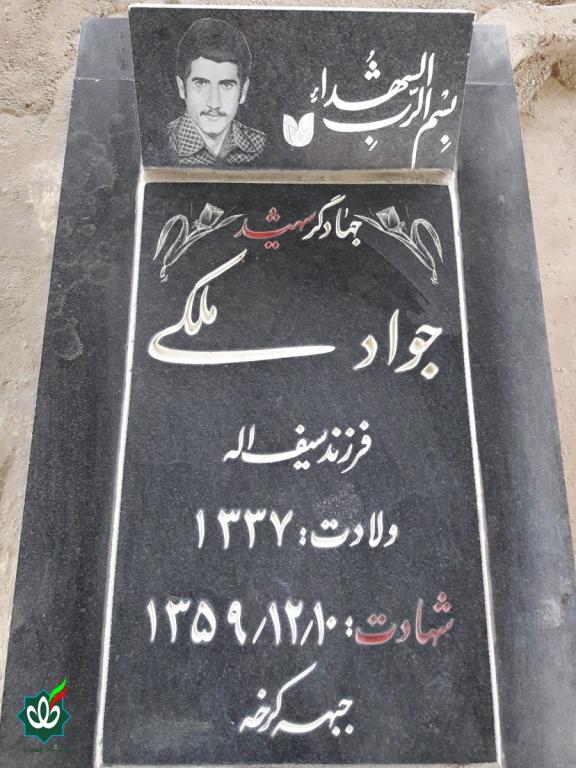 بسم الرب الشهداء
جهادگر شهید
جواد ملکی
فرزند سیف اله
ولادت: ۱۳۳۷
شهادت: ۱۳۵۹/۱۲/۱۰
جبهه کرخه